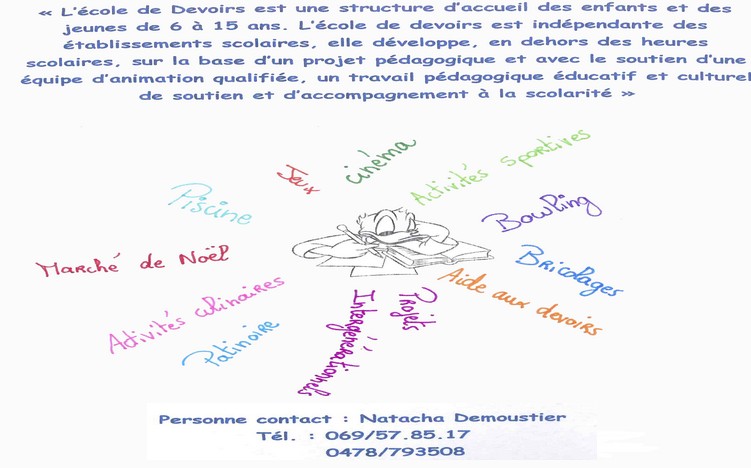 « L'école de Devoirs est une structure d'accueil des enfants et des
jeunes de 6 à 15 ans. L'école de devoirs est indépendante des
établissements scolaires, elle développe, en dehors des heures
scolaires, sur la base d'un projet pédagogique et avec le soutien d'une
équipe d'animation qualifiée, un travail pédagogique éducatif et culturel
de soutien et d'accompagnement à la scolarité »
Cinéma
Activités Sportives
Jeux
Piscine
Bowling
Marché de Noël
Bricolages
Aide aux devoirs
Activités culinaires
Patinoire
Projets
Intergénérationnels
Personne contact : Natacha Demoustier
Tél. : 069/57.85.17
0478/793508